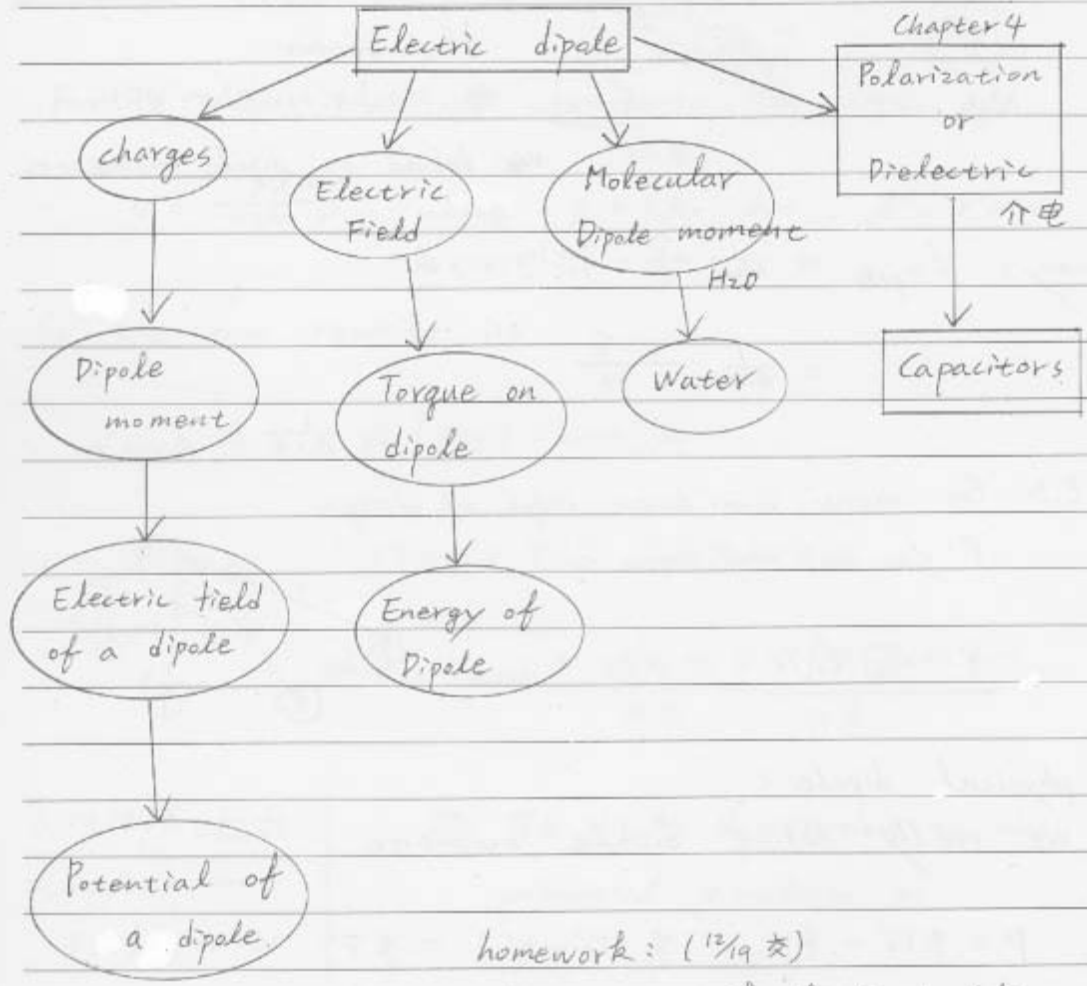 Electric dipole
Chapter 4
Polarization
or
Dielectric
介电
charges
Electric
Field
Molecular
Dipole moment
H2O
Dipole
moment
Torque on
dipole
Water
Capacitors
Electric field
of a dipole
Energy of
Dipole
Potential of
a dipole
homework: (12/19 交)